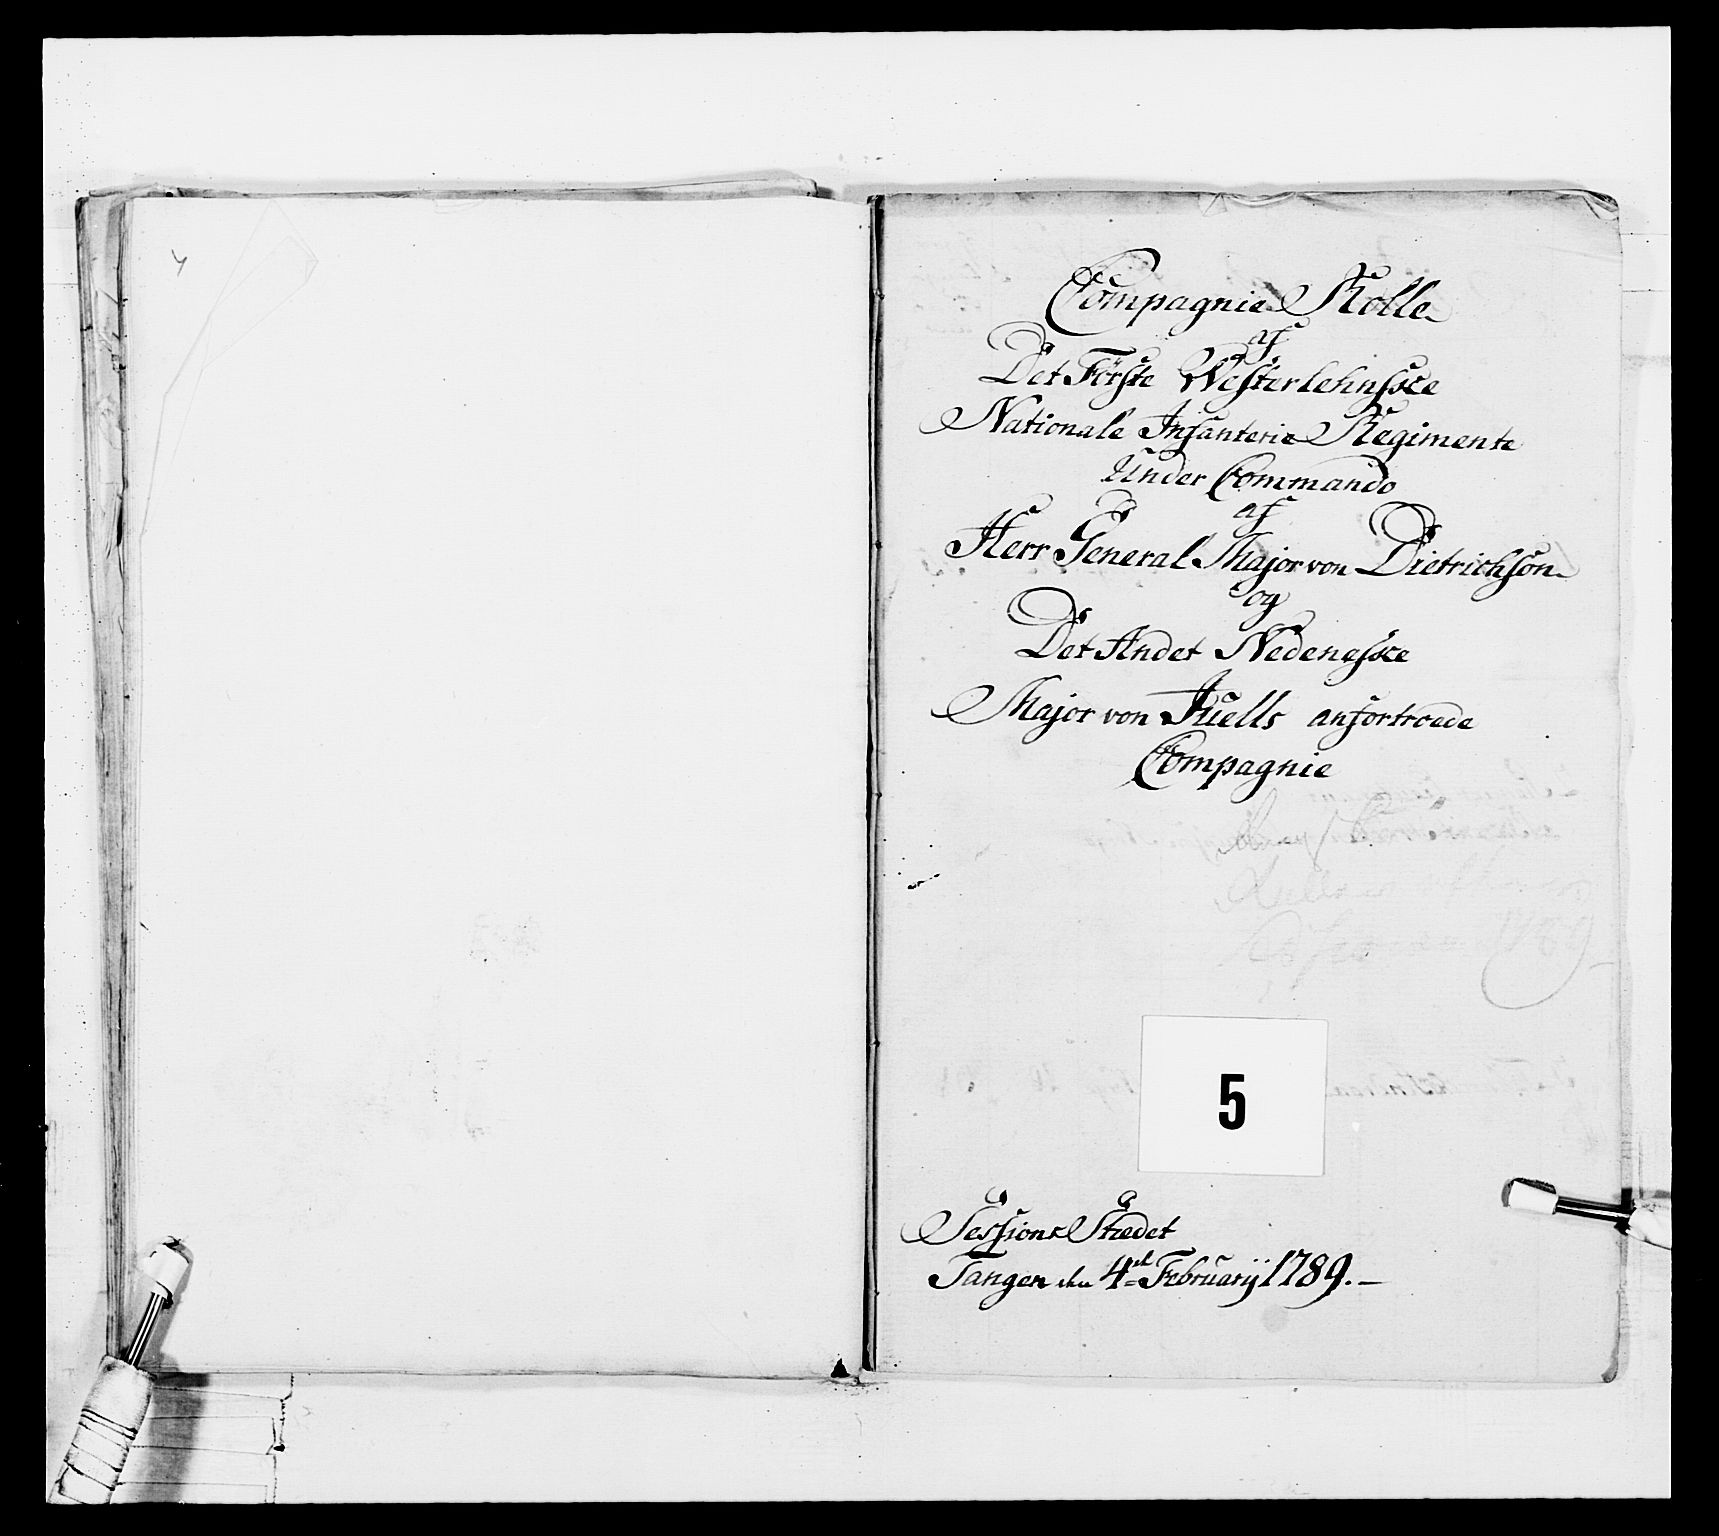 4
Compagnie Rolle
af
Det Förste Westerlehnske
Nationale Infanterie Regimente
Under Commando
af
Herr General Major von Dietrichson
og
Det Andet Nedenæske
Major von Juells anfortroede
Compagnie
5
Sessions Stædet
Tangen den 4de Februarij 1789.